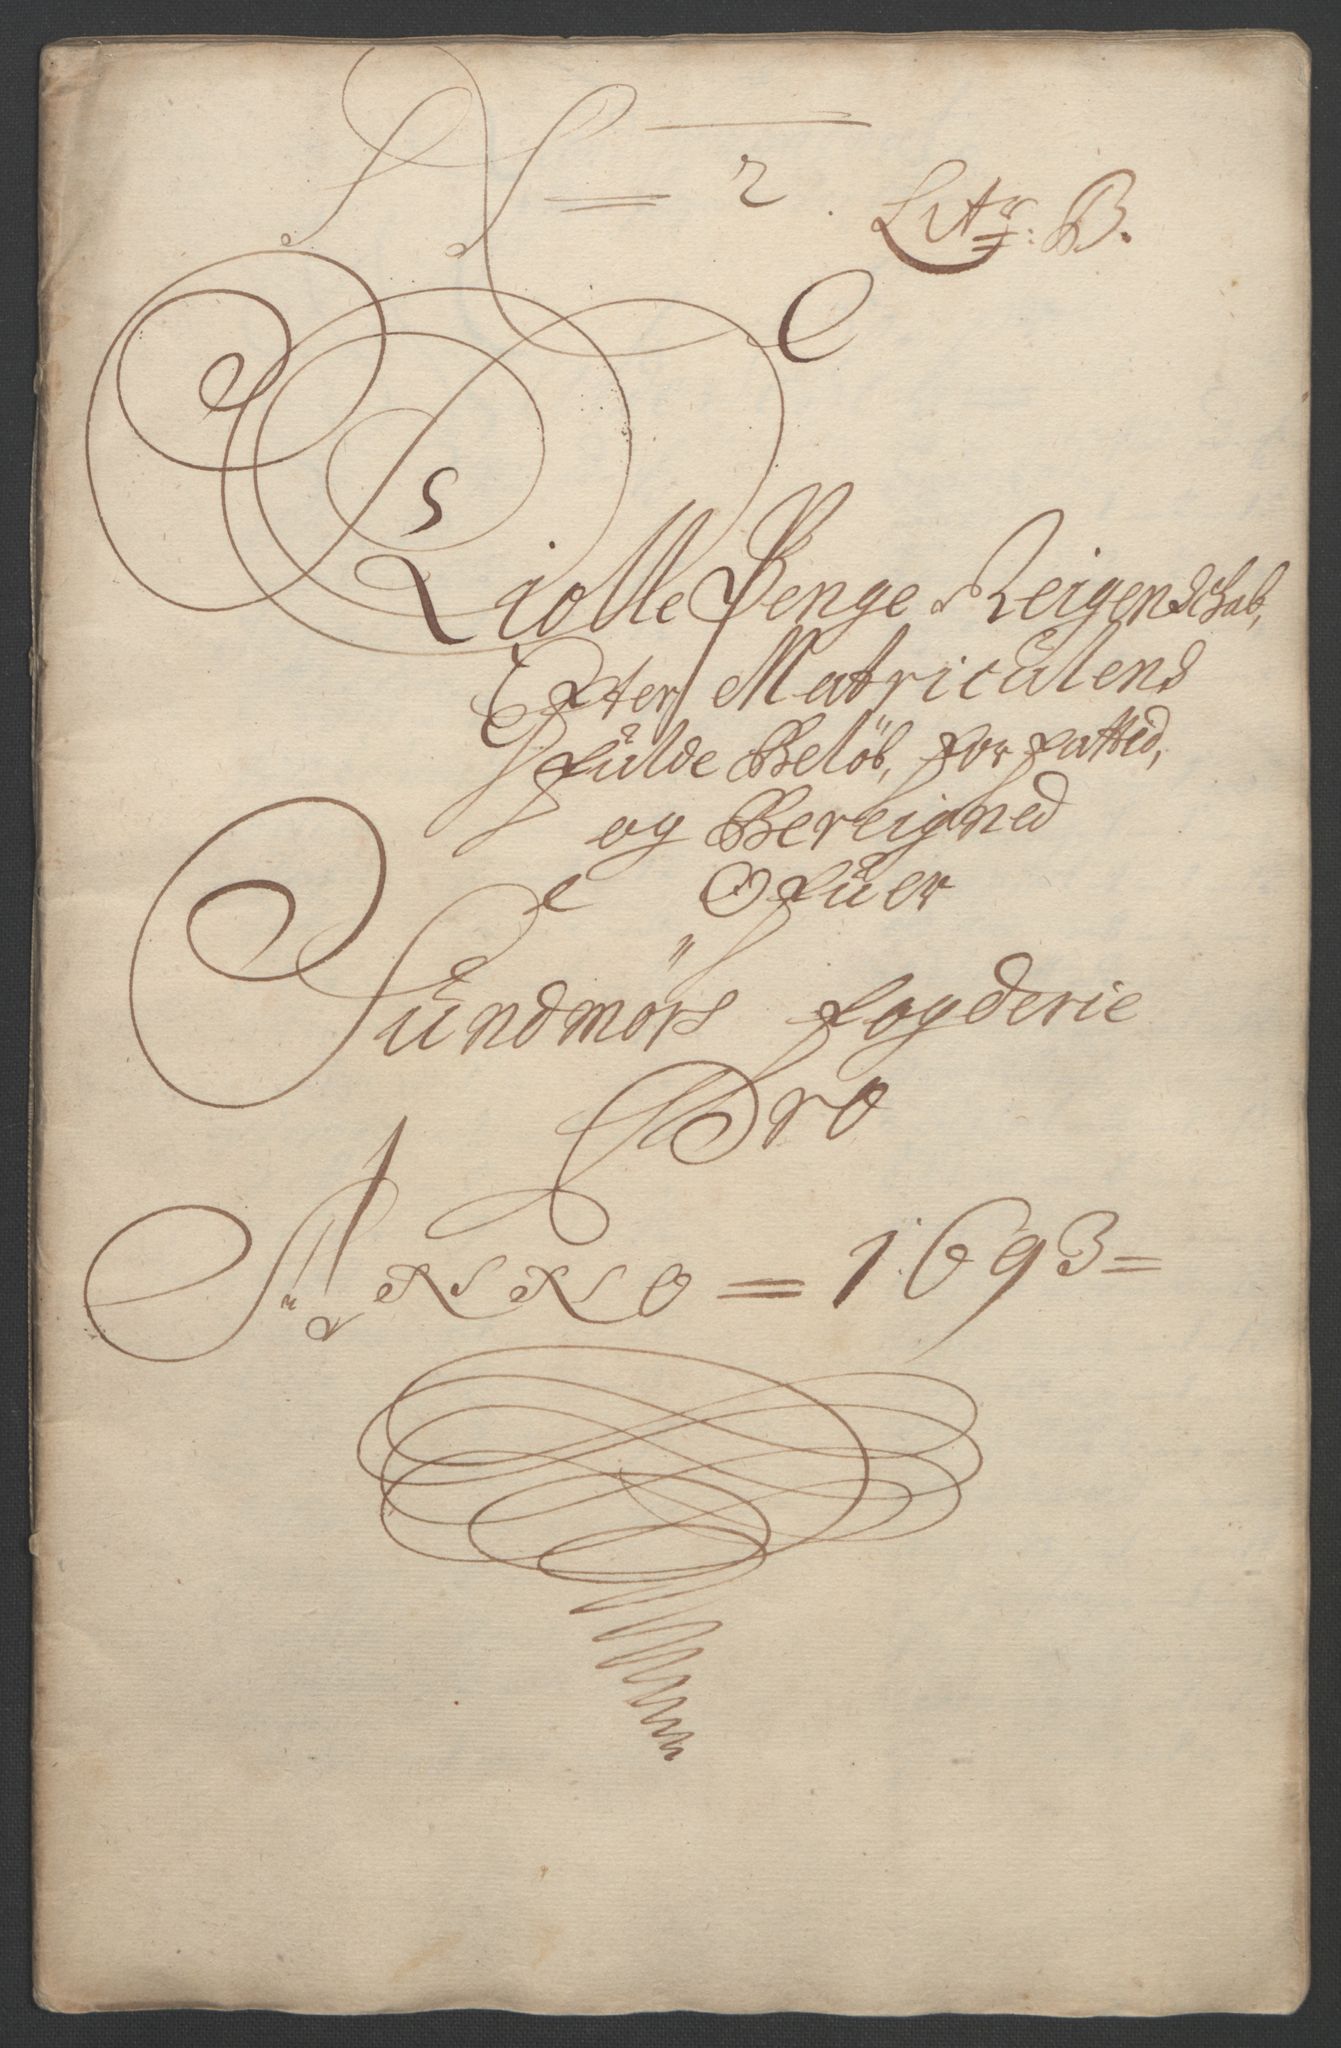 N = 2. Litr: B.
Skiolle Penge Reigenschab,
Efter Matriculens
fulde Beløb, forfatted,
og Bereigned
Ofuer
Sundmørs fogderie
Pro
ANNO = 1693 =